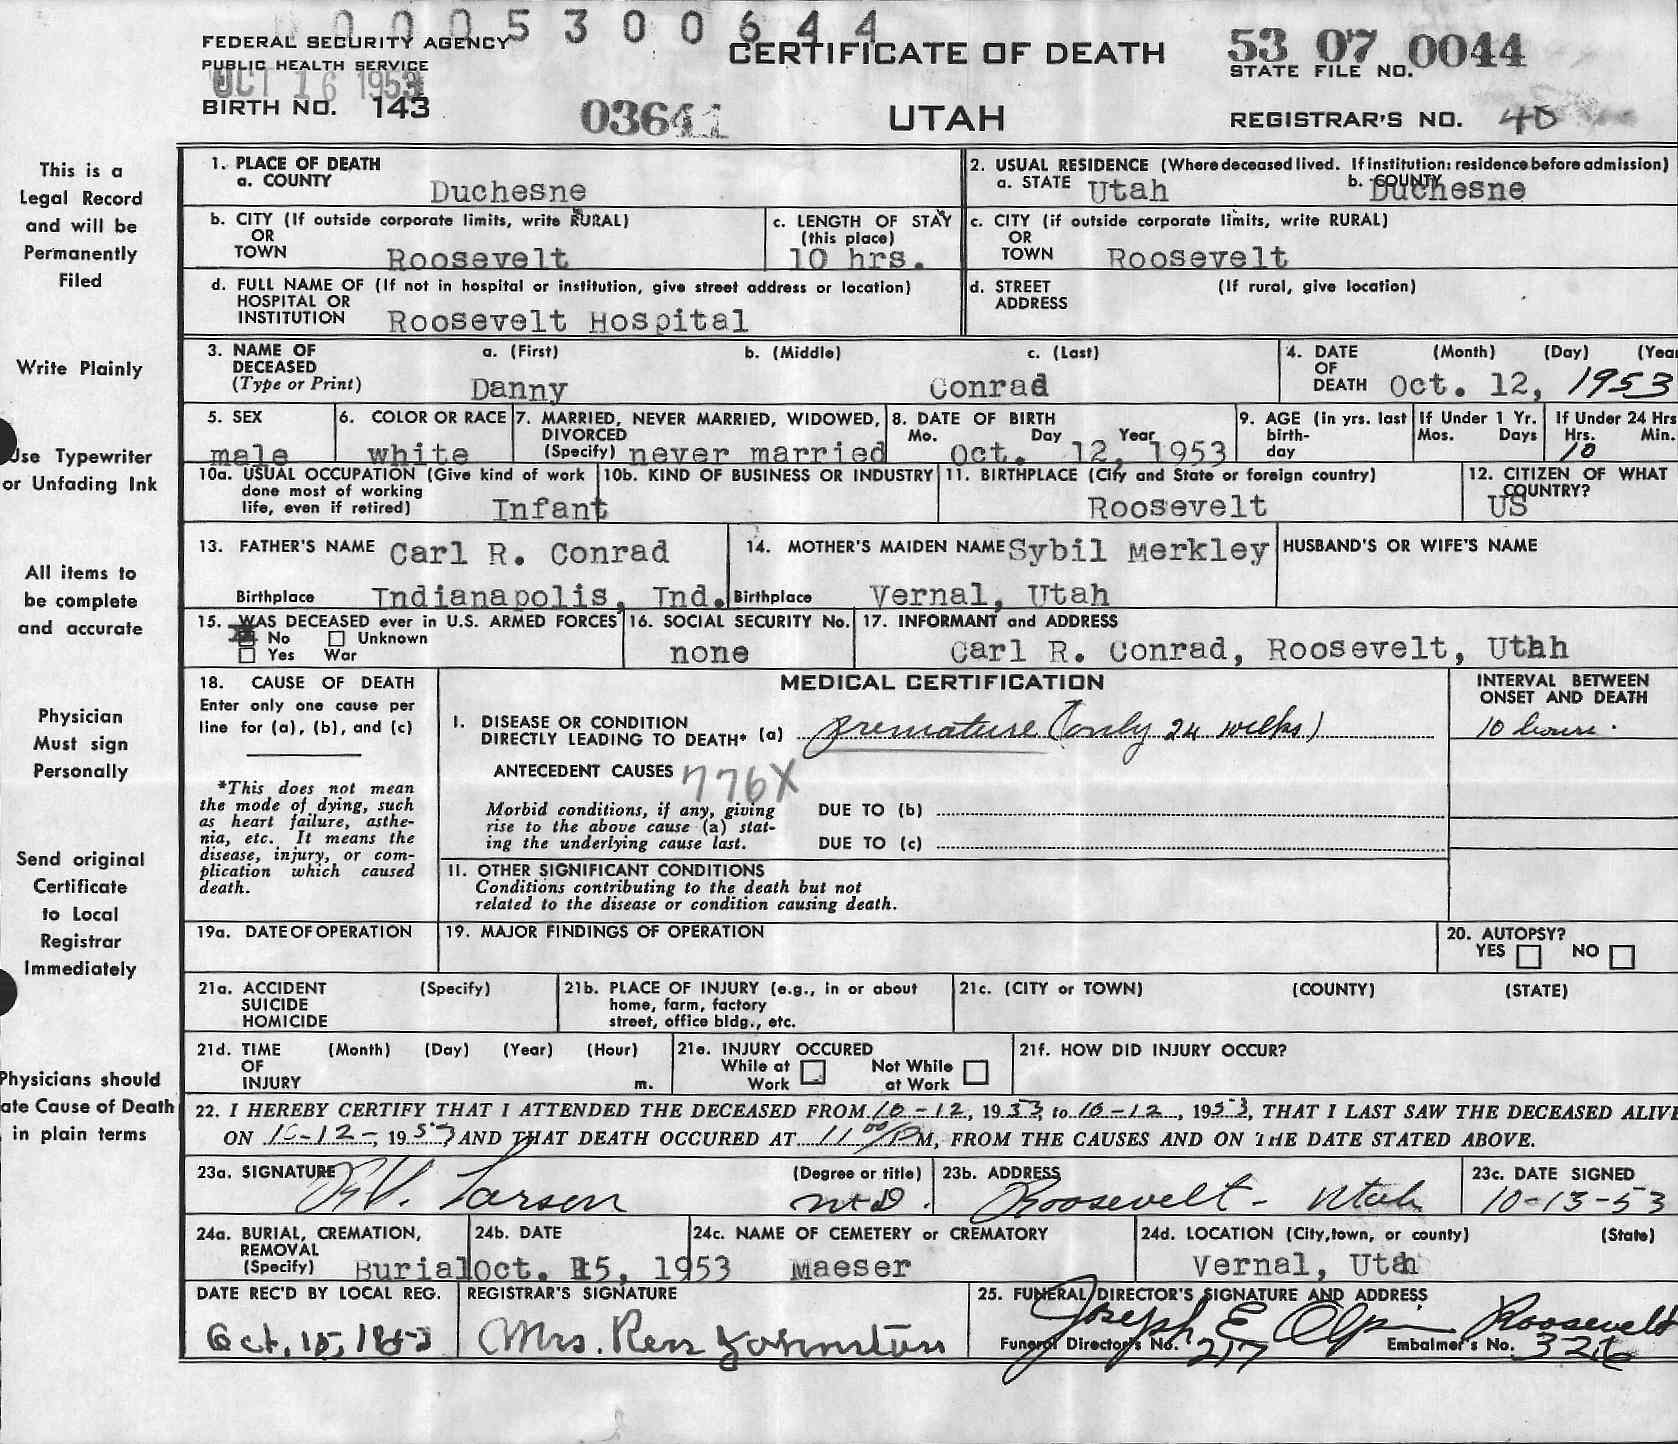 0005300644
FEDERAL SECURITY AGENCY
PUBLIC HEALTH SERVICE
OCT 16 1953
BIRTH NO. 143
03641
CERTIFICATE OF DEATH
UTAH
53 07 0044
STATE FILE NO.
REGISTRAR'S NO. 40
This is a
Legal Record
and will be
Permanently
Filed
Write Plainly
Use Typewriter
or Unfading Ink
All items to
be complete
and accurate
Physician
Must sign
Personally
Send original
Certificate
to Local
Registrar
Immediately
Physicians should
ate Cause of Death
in plain terms
1. PLACE OF DEATH
a. COUNTY Duchesne
2. USUAL RESIDENCE (Where deceased lived. If institution: residence before admission)
a. STATE Utah b. COUNTY Duchesne
b. CITY (If outside corporate limits, write RURAL)
OR
TOWN Roosevelt
c. LENGTH OF STAY
(this place)
10 hrs.
c. CITY (if outside corporate limits, write RURAL)
OR
TOWN Roosevelt
d. FULL NAME OF (If not in hospital or institution, give street address or location)
HOSPITAL OR
INSTITUTION Roosevelt Hospital
d. STREET (If rural, give location)
ADDRESS
3. NAME OF a. (First) b. (Middle) c. (Last)
DECEASED
(Type or Print) Danny Conrad
4. DATE (Month) (Day) (Yea
OF
DEATH Oct. 12, 1953
5. SEX
male
6. COLOR OR RACE
white
7. MARRIED, NEVER MARRIED, WIDOWED,
DIVORCED
(Specify) never married
8. DATE OF BIRTH
Mo. Day Year
Oct. 12, 1953
9. AGE (in yrs. last
birth-
day
If Under 1 Yr.
Mos. Days
If Under 24 Hrs
Hrs. Min.
10
10a. USUAL OCCUPATION (Give kind of work
done most of working
life, even if retired) Infant
10b. KIND OF BUSINESS OR INDUSTRY
11. BIRTHPLACE (City and State or foreign country)
Roosevelt
12. CITIZEN OF WHAT
COUNTRY?
US
13. FATHER'S NAME Carl R. Conrad
Birthplace Indianapolis, Ind.
14. MOTHER'S MAIDEN NAME Sybil Merkley
Birthplace Vernal, Utah
HUSBAND'S OR WIFE'S NAME
15. WAS DECEASED ever in U.S. ARMED FORCES
No Unknown
Yes War
16. SOCIAL SECURITY No.
none
17. INFORMANT and ADDRESS
Carl R. Conrad, Roosevelt, Utah
18. CAUSE OF DEATH
Enter only one cause per
line for (a), (b), and (c)
*This does not mean
the mode of dying, such
as heart failure, asthe-
nia, etc. It means the
disease, injury, or com-
plication which caused
death.
MEDICAL CERTIFICATION
I. DISEASE OR CONDITION
DIRECTLY LEADING TO DEATH* (a) premature (only 24 weeks)
ANTECEDENT CAUSES 776X
Morbid conditions, if any, giving
rise to the above cause (a) stat-
ing the underlying cause last.
DUE TO (b)
DUE TO (c)
II. OTHER SIGNIFICANT CONDITIONS
Conditions contributing to the death but not
related to the disease or condition causing death.
INTERVAL BETWEEN
ONSET AND DEATH
10 hours.
19a. DATE OF OPERATION
19. MAJOR FINDINGS OF OPERATION
20. AUTOPSY?
YES NO
21a. ACCIDENT (Specify)
SUICIDE
HOMICIDE
21b. PLACE OF INJURY (e.g., in or about
home, farm, factory
street, office bldg., etc.
21c. (CITY or TOWN) (COUNTY) (STATE)
21d. TIME (Month) (Day) (Year) (Hour)
OF
INJURY m.
21e. INJURY OCCURED
While at Not While
Work at Work
21f. HOW DID INJURY OCCUR?
22. I HEREBY CERTIFY THAT I ATTENDED THE DECEASED FROM 10-12, 1953 to 10-12, 1953, THAT I LAST SAW THE DECEASED ALIVE
ON 10-12-, 1953 AND THAT DEATH OCCURED AT 11 00/PM, FROM THE CAUSES AND ON THE DATE STATED ABOVE.
23a. SIGNATURE (Degree or title)
R.V. Larsen M.D.
23b. ADDRESS
Roosevelt - Utah
23c. DATE SIGNED
10-13-53
24a. BURIAL, CREMATION,
REMOVAL
(Specify) Burial
24b. DATE
Oct. 15, 1953
24c. NAME OF CEMETERY or CREMATORY
Maeser
24d. LOCATION (City,town, or county) (State)
Vernal, Utah
DATE REC'D BY LOCAL REG.
Oct. 15, 1953
REGISTRAR'S SIGNATURE
Mrs. Ren Johnston
25. FUNERAL DIRECTOR'S SIGNATURE AND ADDRESS
Joseph E Olpin Roosevelt
Funeral Director's No. 217 Embalmer's No. 326